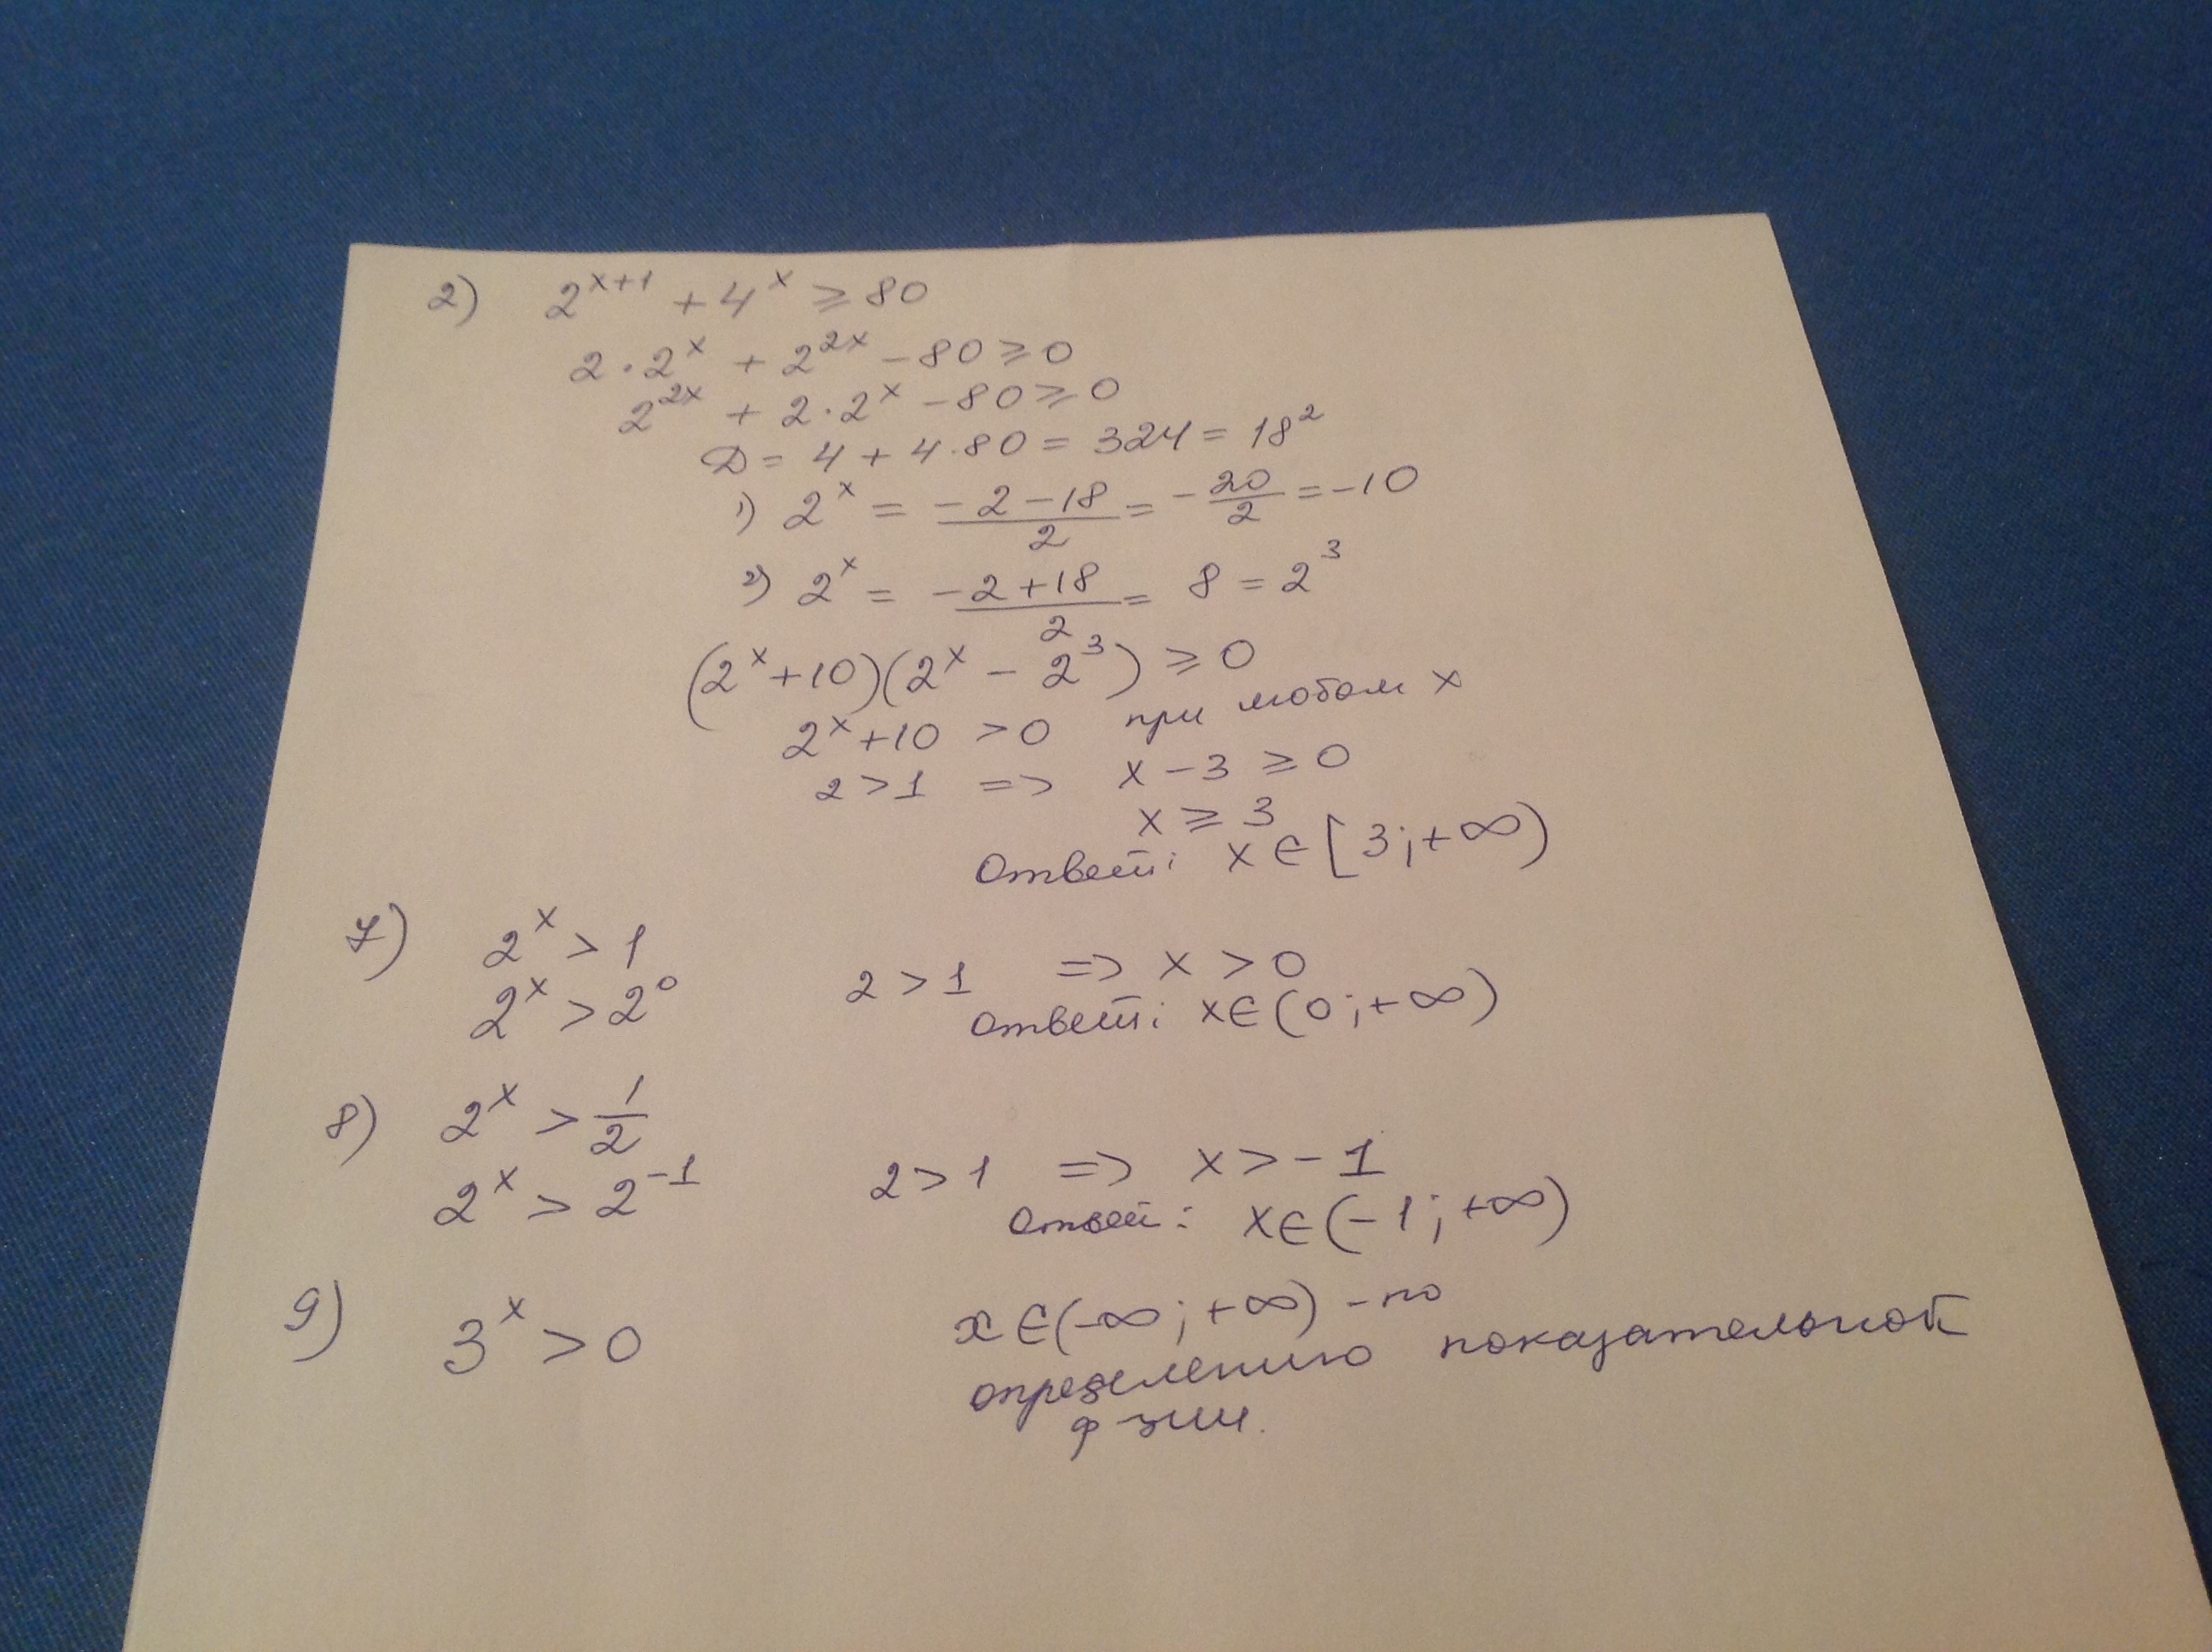 2) 2^{x+1} + 4^x ⩾ 80
2·2^x + 2^{2x} − 80 ⩾ 0
2^{2x} + 2·2^x − 80 ⩾ 0
D = 4 + 4·80 = 324 = 18^2
1) 2^x = (−2−18)/2 = −20/2 = −10
2) 2^x = (−2+18)/2 = 8 = 2^3
(2^x + 10)(2^x − 2^3) ⩾ 0
2^x + 10 > 0 при любом x
2 > 1 => x − 3 ⩾ 0
x ⩾ 3
Ответ: x ∈ [3; +∞)
7) 2^x > 1
2^x > 2^0 2 > 1 => x > 0
Ответ: x ∈ (0; +∞)
8) 2^x > 1/2
2^x > 2^{−1} 2 > 1 => x > −1
Ответ: x ∈ (−1; +∞)
9) 3^x > 0 x ∈ (−∞; +∞) – по
определению показательной
ф-зии.